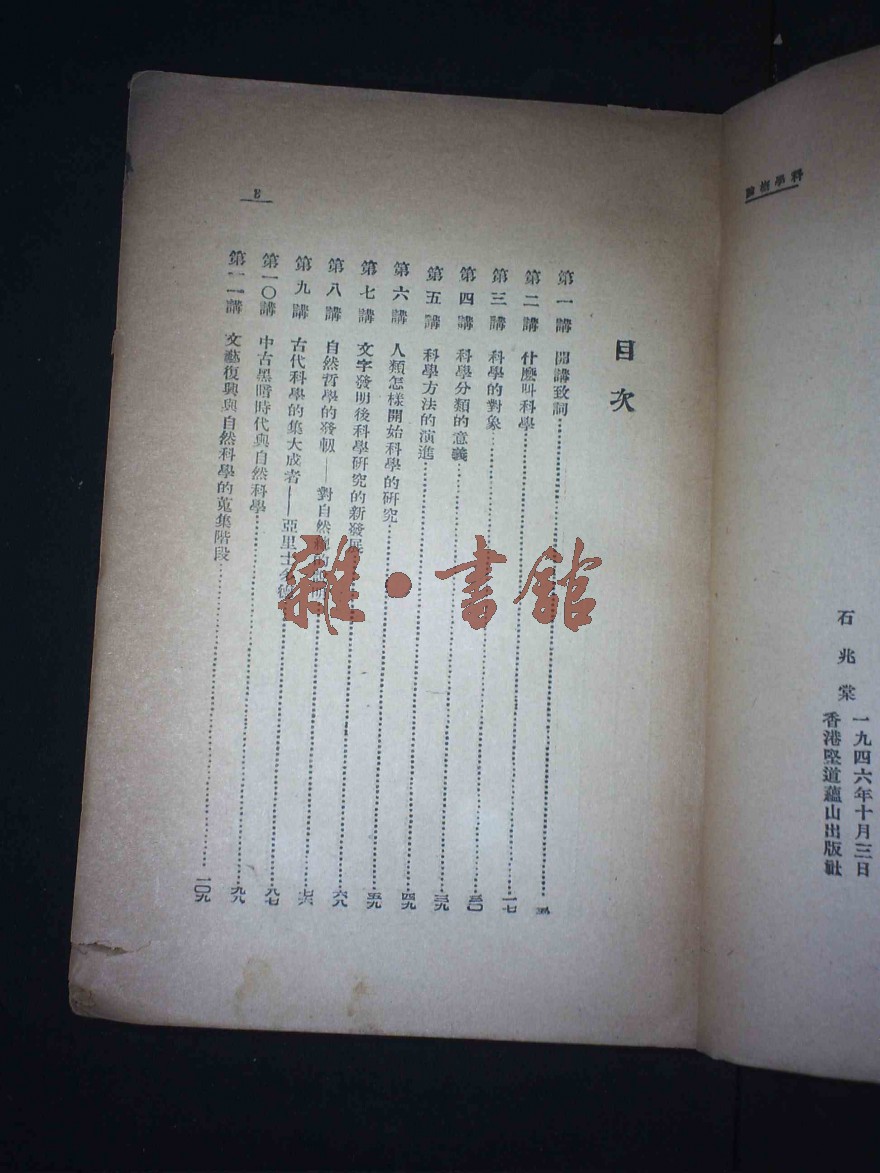 科學概論
一九四六年十月三日
香港堅道蘊山出版社
石兆棠
目次
第一講 開講致詞
第二講 什麼叫科學……一七
第三講 科學的對象……三〇
第四講 科學分類的意義……三九
第五講 科學方法的演進……四九
第六講 人類怎樣開始科學的研究……五九
第七講 文字發明後科學研究的新發展……六八
第八講 自然哲學的發軔——對自然……七六
第九講 古代科學的集大成者——亞里士多德……八七
第一〇講 中古黑暗時代與自然科學……九八
第一一講 文藝復興與自然科學的蒐集階段……一〇九
雜·書館